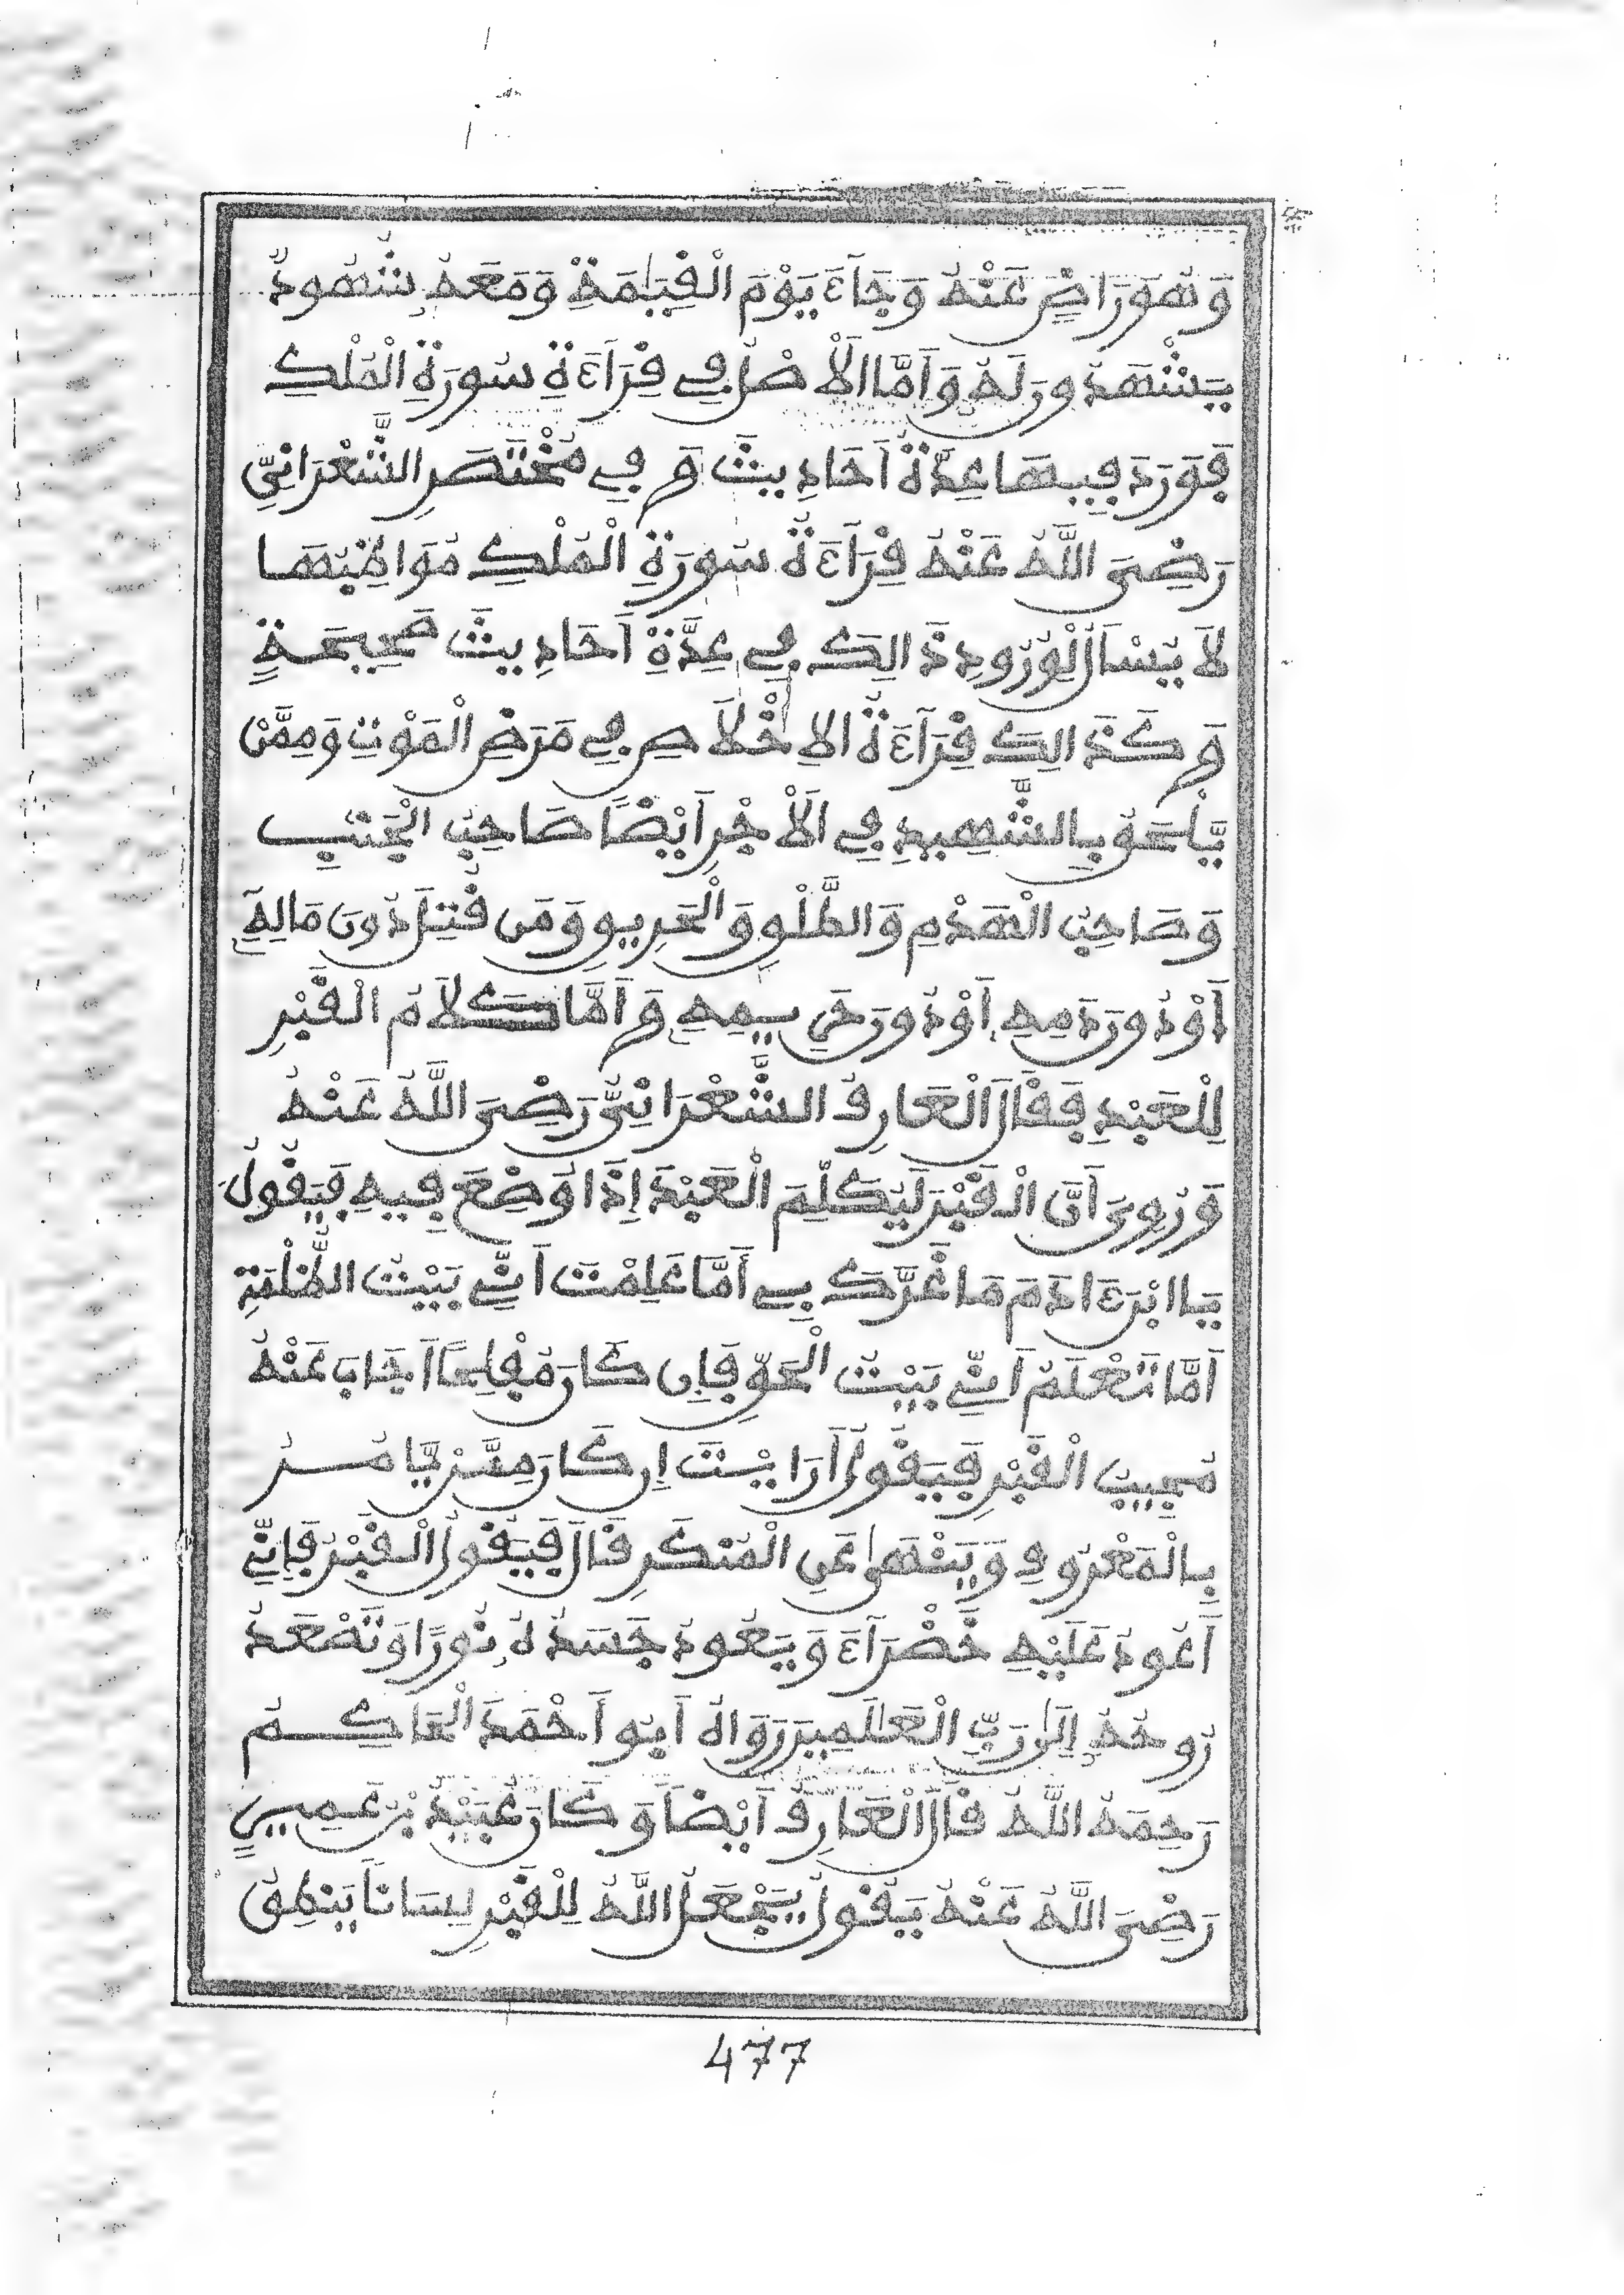 وَهُوَ رَاضٍ عَنْهُ وَجَآءَ يَوْمَ الْقِيَٰمَةِ وَمَعَهُ شُهُودٌ
يَشْهَدُونَ لَهُ وَأَمَّا الْأَصْلُ فِي قِرَآءَةِ سُورَةِ الْمُلْكِ
فَوَرَدَ فِيهَا عِدَّةُ أَحَادِيثَ وَفِي مُخْتَصَرِ الشَّعْرَانِيِّ
رَضِيَ اللَّهُ عَنْهُ قِرَآءَةُ سُورَةِ الْمُلْكِ مُوَاظِبُهَا
لَا يُسْأَلُ لِوُرُودِ ذَالِكَ فِي عِدَّةِ أَحَادِيثَ صَحِيحَةٍ
وَكَذَالِكَ قِرَآءَةُ الْإِخْلَاصِ فِي مَرَضِ الْمَوْتِ وَمِمَّنْ
يَّلْحَقُ بِالشَّهِيدِ فِي الْأَجْرِ أَيْضًا صَاحِبُ الْجَنْبِ
وَصَاحِبُ الْهَدْمِ وَالطَّلْقِ وَالْحَرِيقِ وَمَن قُتِلَ دُونَ مَالِهِ
أَوْ دُونَ دَمِهِ أَوْ دُونَ حَرِيمِهِ وَأَمَّا كَلَامُ الْقَبْرِ
لِلْعَبْدِ فَقَالَ الْعَارِفُ الشَّعْرَانِيُّ رَضِيَ اللَّهُ عَنْهُ
وَرُوِيَ أَنَّ الْقَبْرَ لَيُكَلِّمُ الْعَبْدَ إِذَا وُضِعَ فِيهِ فَيَقُولُ
يَا ابْنَ ءَادَمَ مَا غَرَّكَ بِي أَمَا عَلِمْتَ أَنِّي بَيْتُ الظُّلْمَةِ
أَمَّا تَعْلَمُ أَنِّي بَيْتُ الْحَقِّ فَإِن كَانَ مُفْلِحًا أَجَابَ عَنْهُ
مُجِيبُ الْقَبْرِ فَيَقُولُ أَرَايْتَ إِن كَانَ مِمَّنْ يَّامُرُ
بِالْمَعْرُوفِ وَيَنْهَىٰ عَنِ الْمُنكَرِ قَالَ فَيَقُولُ الْقَبْرُ فَإِنِّي
أَعُودُ عَلَيْهِ خَضْرَآءَ وَيَعُودُ جَسَدُهُ نُورًا وَتَصْعَدُ
رُوحُهُ إِلَىٰ رَبِّ الْعَٰلَمِينَ رَوَاهُ أَبُو أَحْمَدَ الْحَاكِمُ
رَحِمَهُ اللَّهُ قَالَ الْعَارِفُ أَيْضًا وَكَانَ عُبَيْدُ بْنُ عُمَيْرٍ
رَضِيَ اللَّهُ عَنْهُ يَقُولُ يَجْعَلُ اللَّهُ لِلْقَبْرِ لِسَانًا يَنطِقُ
477